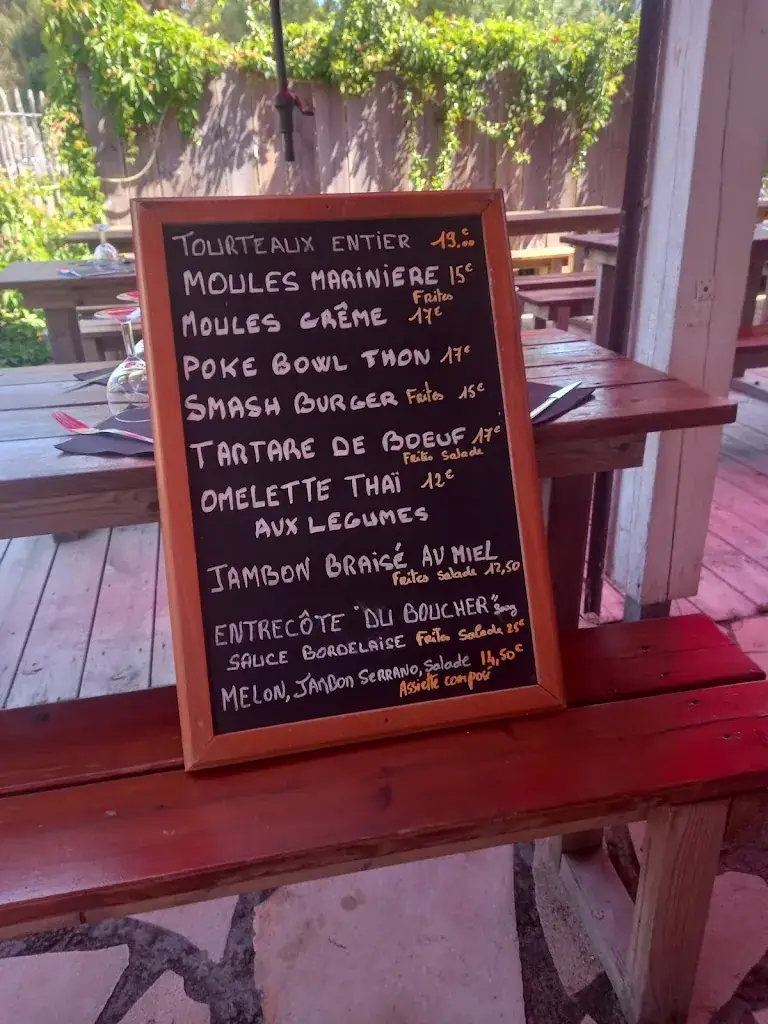 TOURTEAUX ENTIER 19.€
MOULES MARINIERE 15€
Frites
MOULES CRÊME 17€
POKE BOWL THON 17€
SMASH BURGER Frites 15€
TARTARE DE BOEUF 17€
Frites Salade
OMELETTE THAÏ 12€
AUX LEGUMES
JAMBON BRAISÉ AU MIEL
Frites Salade 12,50
ENTRECÔTE "DU BOUCHER"
SAUCE BORDELAISE Frites Salade 25€
MELON, JAMBON SERRANO, Salade 14,50€
Assiette composé